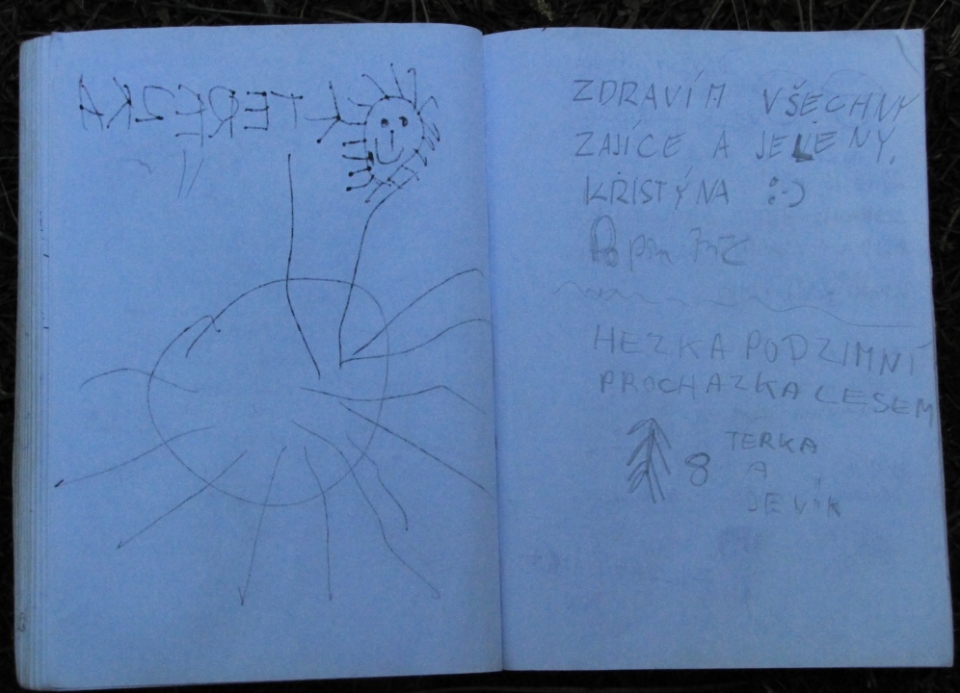 TEREZKA
ZDRAVÍM VŠECHNY
ZAJÍCE A JELENY.
KRISTÝNA :-)
HEZKA PODZIMNÍ
PROCHAZKA LESEM
TERKA
A
JENÍK